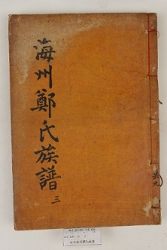 海州鄭氏族譜 三